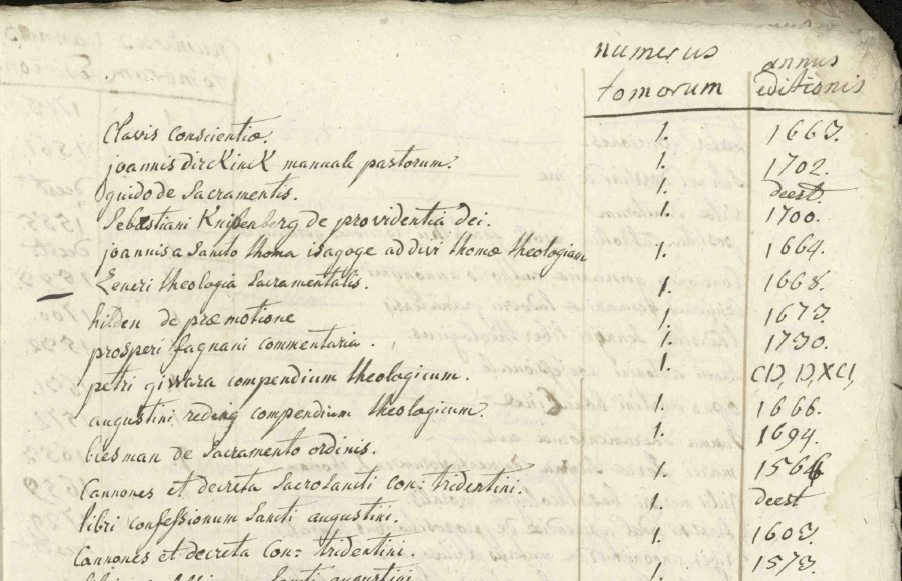 numerus annus
tomorum editionis
Clavis conscientiæ. 1. 1663.
joannis dirckinck manuale pastorum. 1. 1702.
guido de Sacramentis. 1. deest.
Sebastiani Knippenberg de providentia dei. 1. 1700.
joannis a Sancto thoma isagoge ad divi thomæ theologiam 1. 1664.
Zeneri theologia Sacramentalis. 1. 1668.
hilden de præmotione 1 1673
prosperi fagnani commentaria. 1. 1730.
petri giwara compendium theologicum. 1. CIƆ,IƆ,XCI,
augustini reding compendium theologicum. 1. 1666.
biesman de Sacramento ordinis. 1. 1694.
Cannones et decreta Sacrosancti con: tridentini. 1. 1564
libri confessionum Sancti augustini. 1. deest
Cannones et decreta Con: tridentini. 1. 1603.
Sancti augustini 1. 1573.